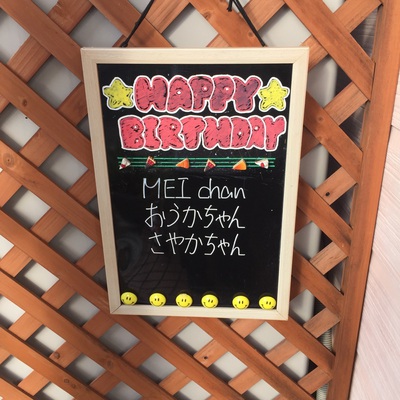 HAPPY
BIRTHDAY
MEI chan
おうかちゃん
さやかちゃん